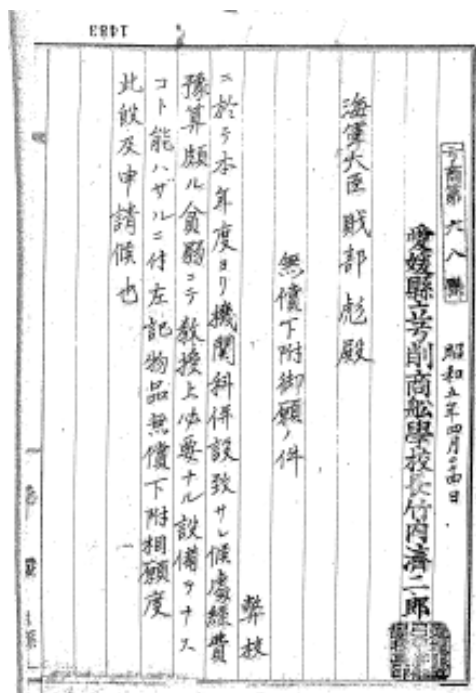 弓商第六八號
昭和五年四月二四日
愛媛縣立弓削商船學校長竹内濟二郎
海軍大臣財部彪殿
無償下附御願ノ件
弊校
ニ於テ本年度ヨリ機関科併設致サレ候處經費
豫算頗ル貧弱ニテ教授上必要ナル設備ヲナス
コト能ハザルニ付左記物品無償下附相願度
此段及申請候也
1483